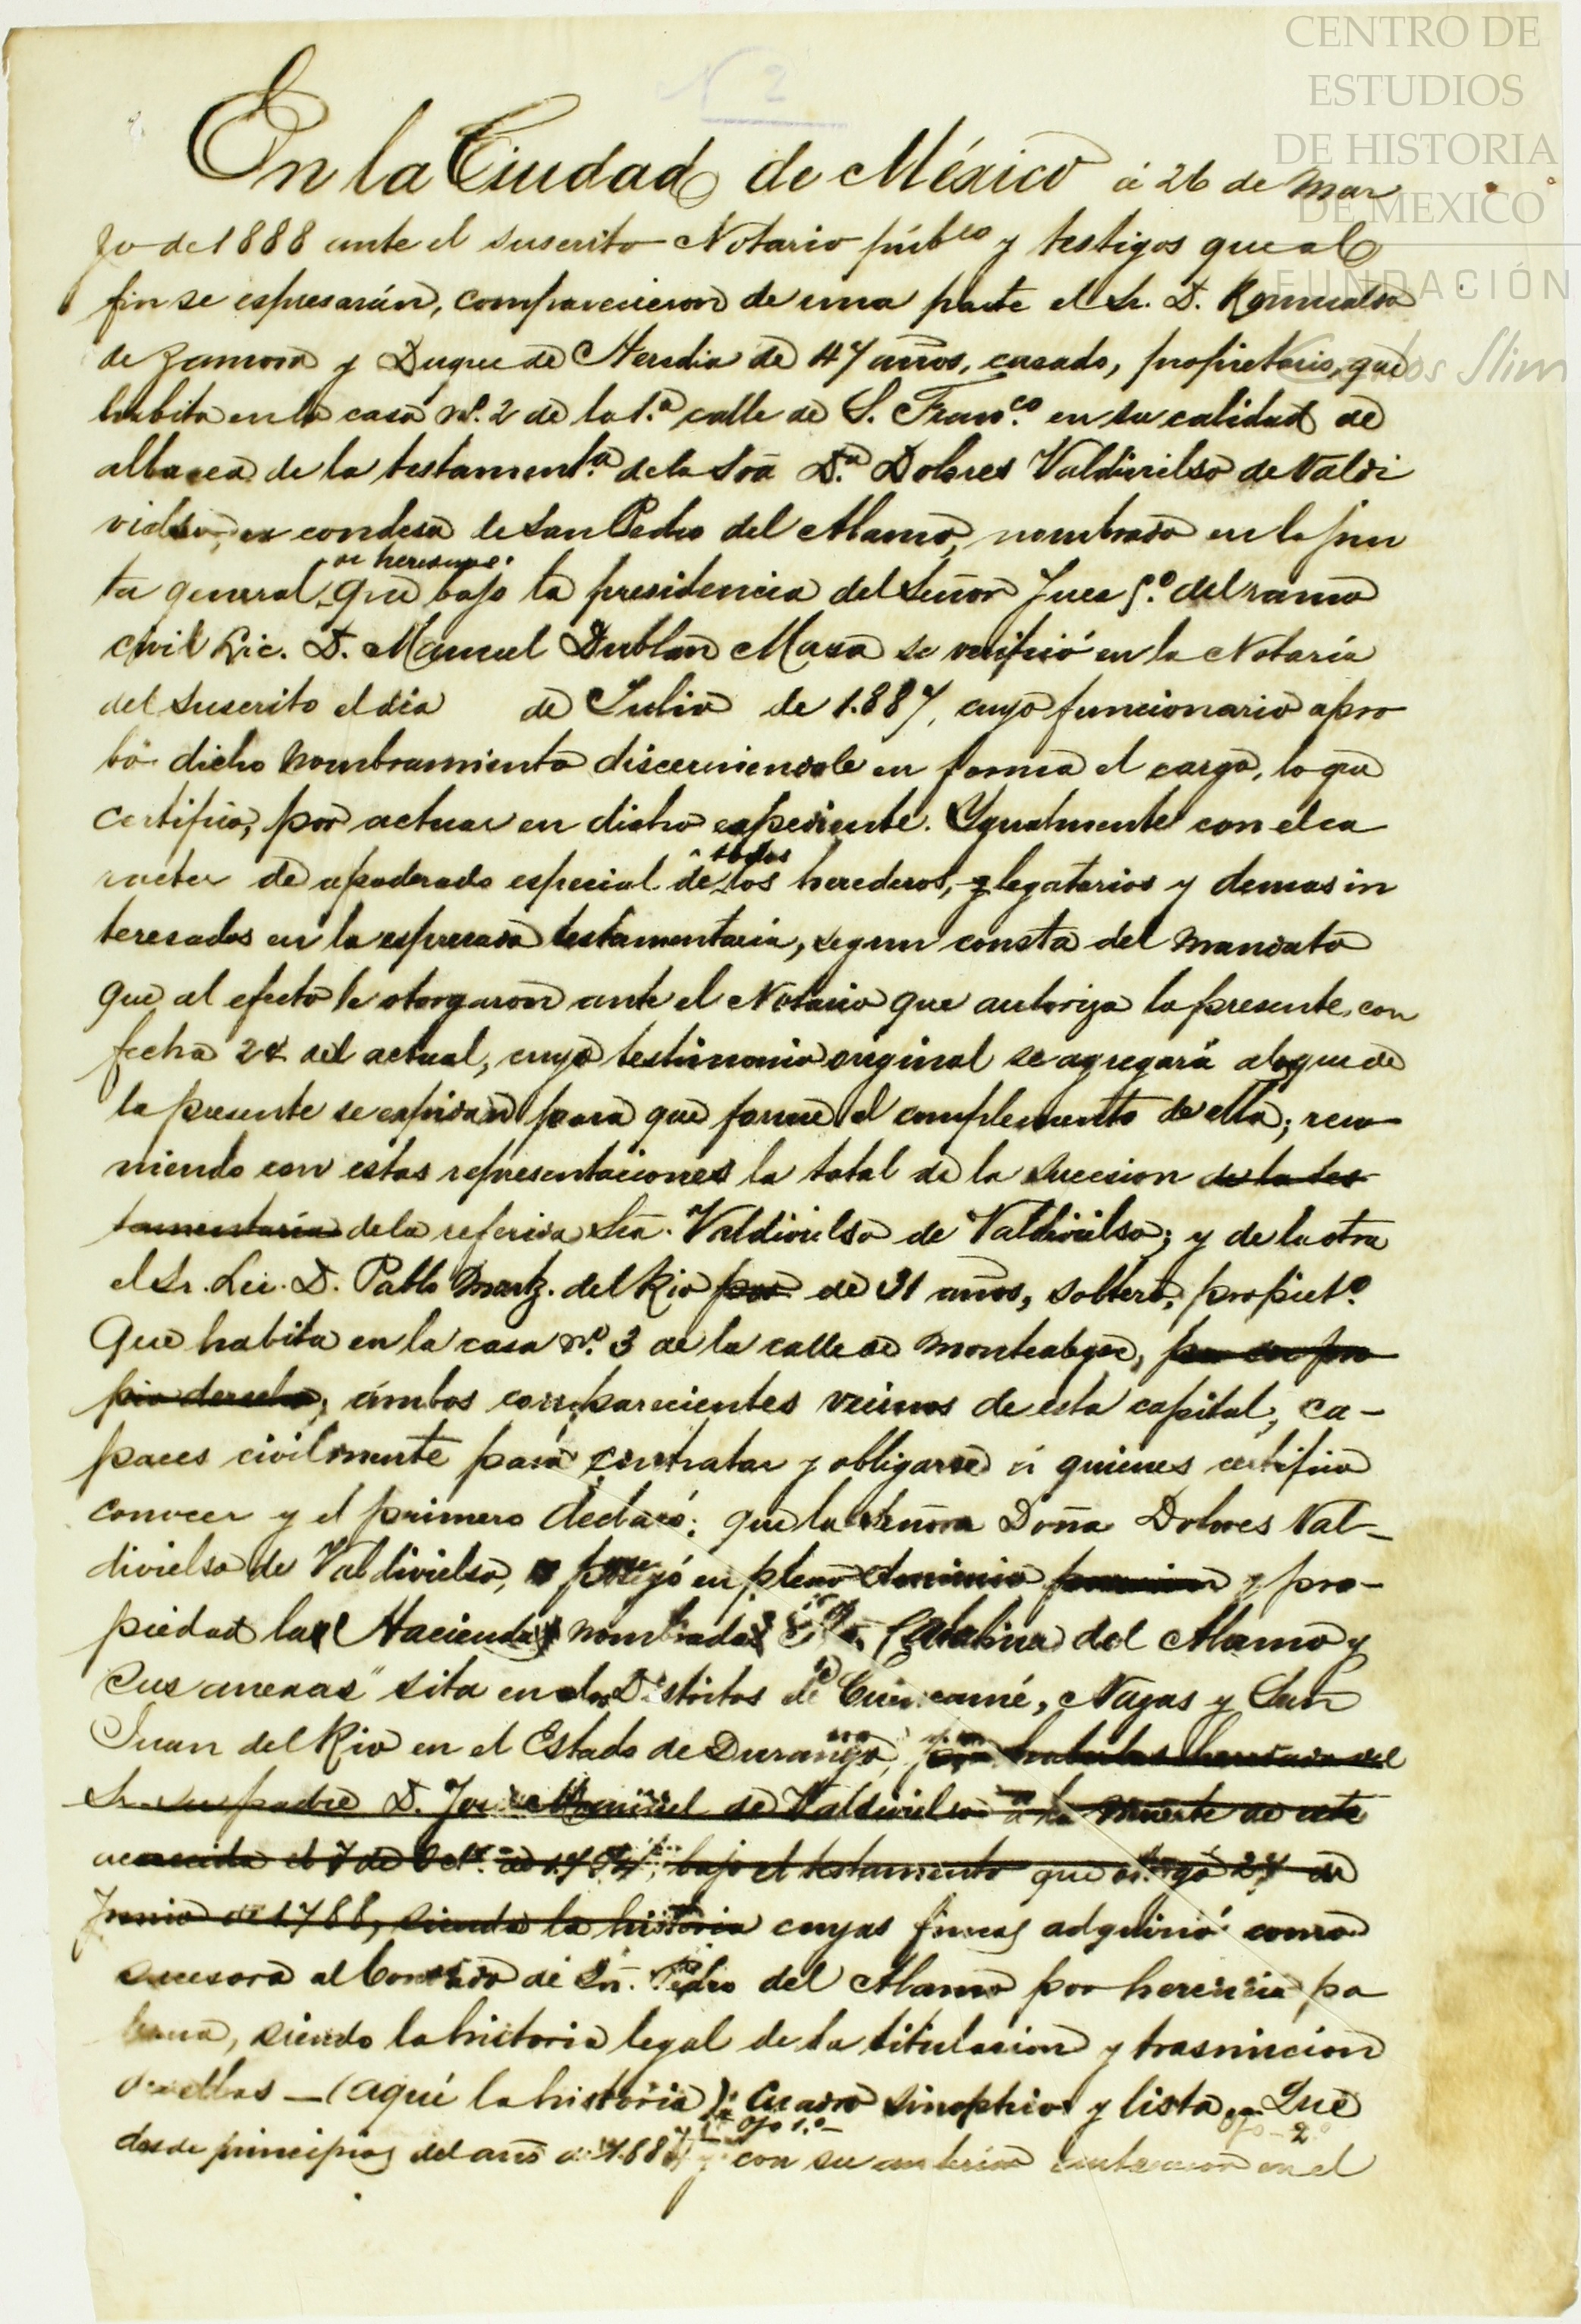 CENTRO DE
ESTUDIOS
DE HISTORIA
DE MEXICO
FUNDACIÓN
Carlos Slim
N 2
En la Ciudad de México á 26 de Mar
zo de 1888 ante el suscrito Notario púbco y testigos que al
fin se espresarán, comparecieron de una parte el Sr. D. Romualdo
de Zamora y Duque de Heredia de 47 años, casado, propietario, que
habita en la casa no. 2 de la 1.a calle de S. Franco. en su calidad de
albacea de la testamenta. de la Sra Da. Dolores Valdivielso de Valdi
vielso, ex condesa de San Pedro del Alamo, nombrado en la jun
de herederos
ta general que bajo la presidencia del Señor Juez 5.o del ramo
civil Lic. D. Manuel Dublan Maza se verificó en la Notaría
del suscrito el dia de Julio de 1.887, cuyo funcionario apro
bó dicho nombramiento discerniendole en forma el cargo, lo que
certifico, por actuar en dicho expediente. Igualmente con el ca
todos
racter de apoderado especial de los herederos, y legatarios y demas in
teresados en la espresada testamentaria, segun consta del mandato
que al efecto le otorgaron ante el Notario que autoriza la presente con
fecha 24 del actual, cuyo testimonio original se agregará al que de
la presente se expida para que forme el complemento de ella; reu
niendo con estas representaciones la total de la sucesion de la tes
tamentaria de la referida Sra. Valdivielso de Valdivielso; y de la otra
el Sr. Lic. D. Pablo Martz. del Rio por de 31 años, soltero, propieto.
que habita en la casa no. 3 de la calle de Montealegre, por su pro
pio derecho, ámbos comparecientes vecinos de esta capital, ca-
paces civilmente para contratar y obligarse á quienes certifico
conocer y el primero declaró: que la Señora Doña Dolores Val-
divielso de Valdivielso, poseyó en pleno dominio posesion y pro-
piedad las Haciendas nombradas Sta. Catalina del Alamo y
sus anexas" sita en los Distritos de Cuencamé, Nazas y San
Juan del Rio en el Estado de Durango, por haberlas heredado del
Sr. su padre D. José Manuel de Valdivielso á la muerte de este
acaecida el 7 de Oct. de bajo el testamento que otorgó 24 de
Junio de 1788, siendo la historia cuyas fincas adquirió como
sucesora al Condado de Sn. Pedro del Alamo por herencia pa
terna, siendo la historia legal de la titulacion y trasmicion
de ellas — (aquí la historia) Cuadro sinoptico y lista Que
ojo 1.o — ojo - 2o
desde principios del año de 1.88 y con su anterior en el